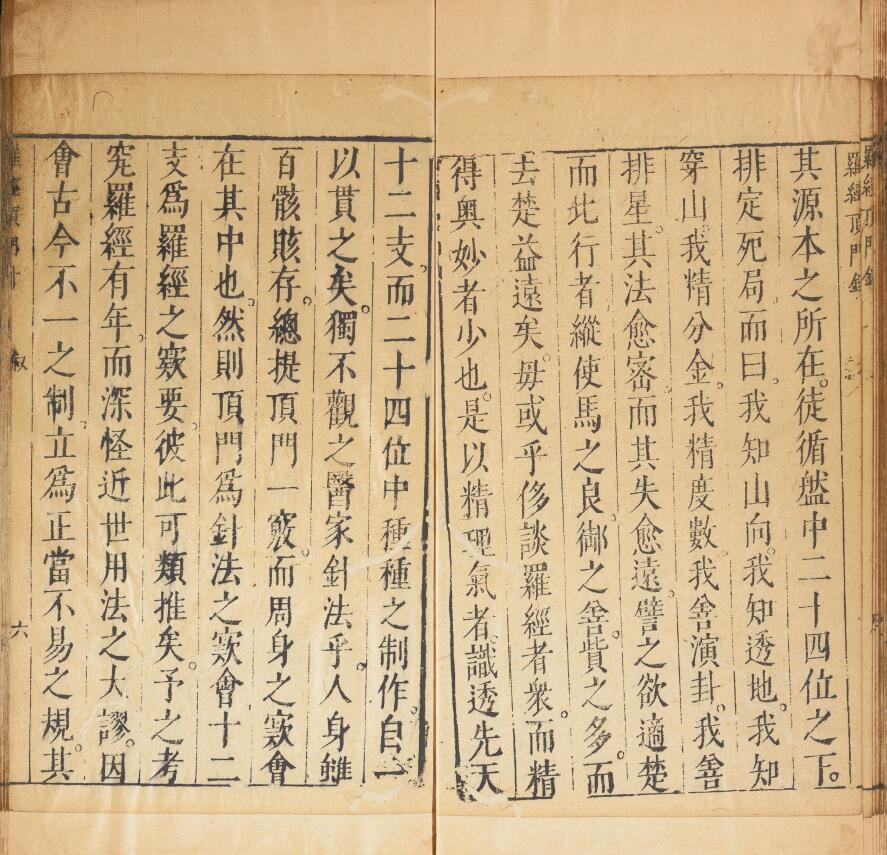 羅經頂門針
其源本之所在。徒循盤中二十四位之下。
排定死局。而曰。我知山向。我知透地。我知
穿山。我精分金。我精度數。我善演卦。我善
排星。其法愈密而其失愈遠。譬之欲適楚
而北行者。縱使馬之良。御之善。貲之多。而
去楚益遠矣。毋或乎侈談羅經者衆。而精
得奥妙者少也。是以精理氣者。識透先天
十二支。而二十四位中種種之制作。自一
以貫之矣。獨不觀之醫家針法乎。人身雖
百骸賅存。總提頂門一竅。而周身之竅會
在其中也。然則頂門爲針法之竅會。十二
支爲羅經之竅要。彼此可類推矣。予之考
究羅經有年。而深怪近世用法之大謬。因
會古今不一之制。立爲正當不易之規。其
羅經頂門針 叙 六